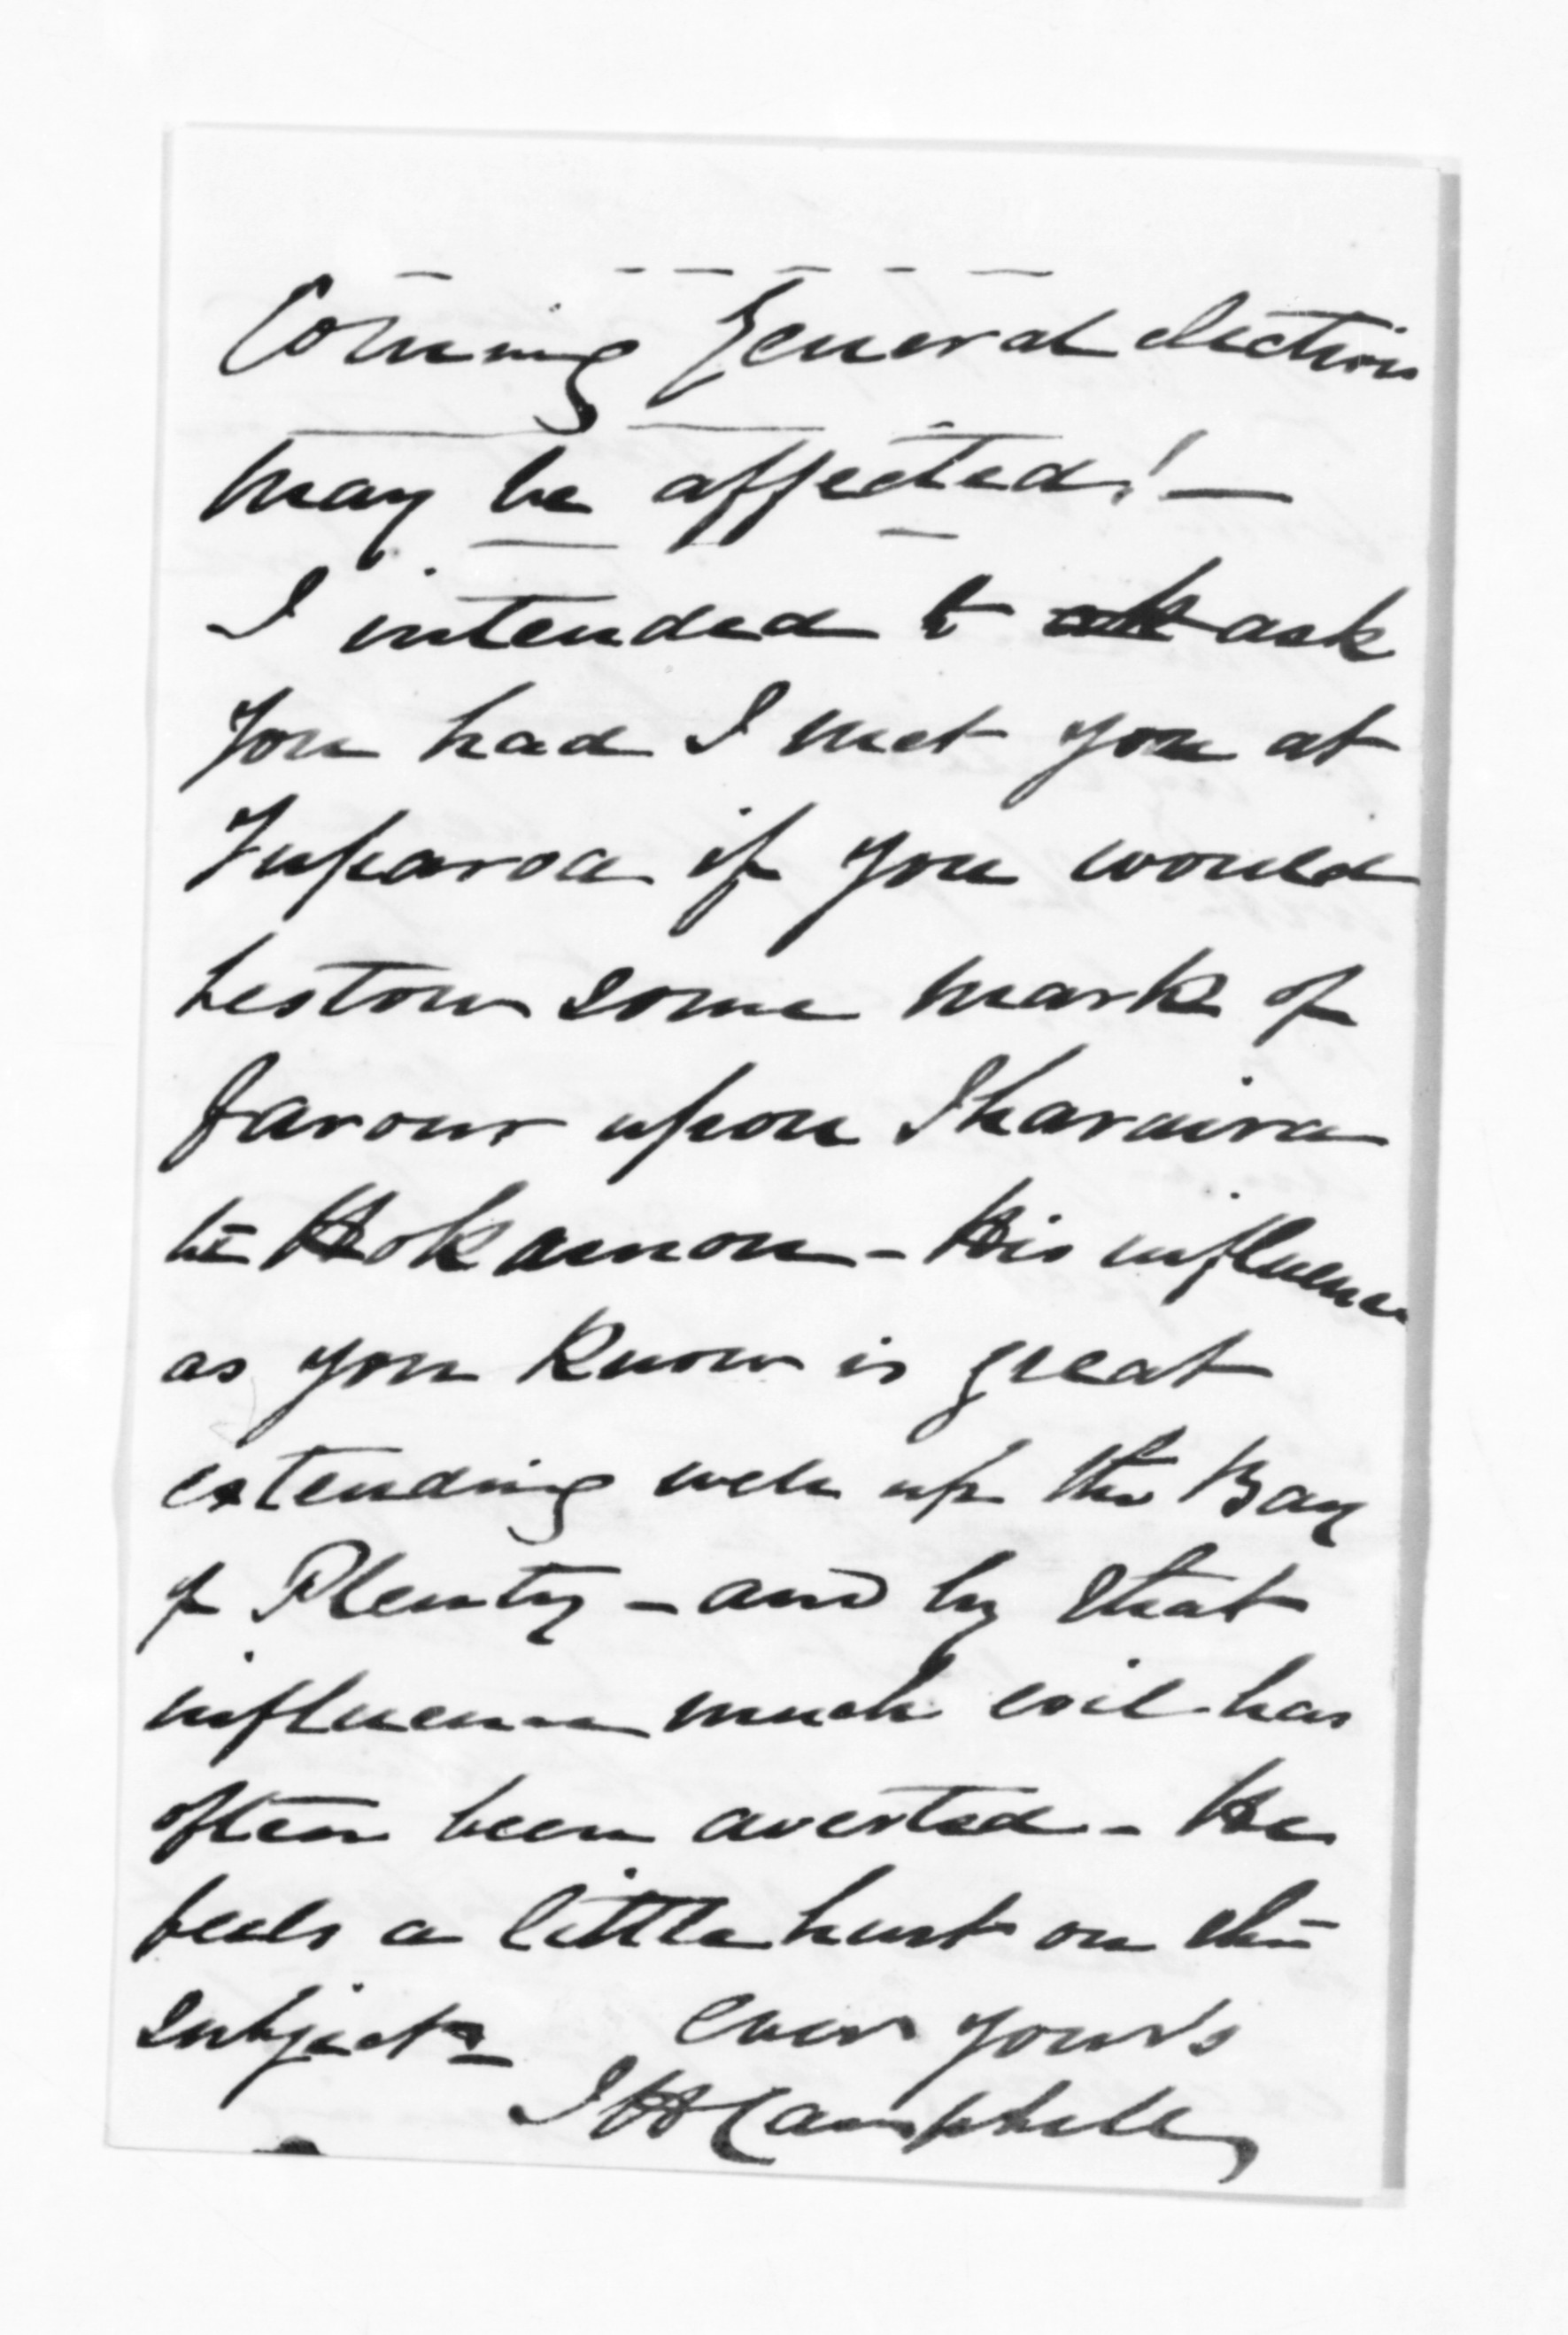 Coming General election
may be affected! —
I intended to ask ask
you had I met you at
Tuparoa if you would
bestow some mark of
favour upon Iharaira
te Hokamou - His influence
as you know is great
extending well up the Bay
of Plenty - and by that
influence much evil has
often been averted - He
feels a little hurt on this
subject - ever yours
Campbell